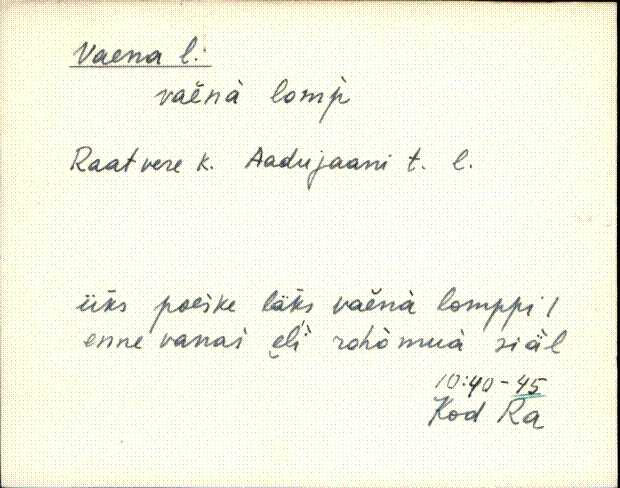 Vaena l.:
vaěnà lomp̀
Raatvere k. Aadujaani t. l.
üks poěske läks vaěnà lomppi /
enne vanaś eli rohòmuà siäl
10:40-45
Kod Ra